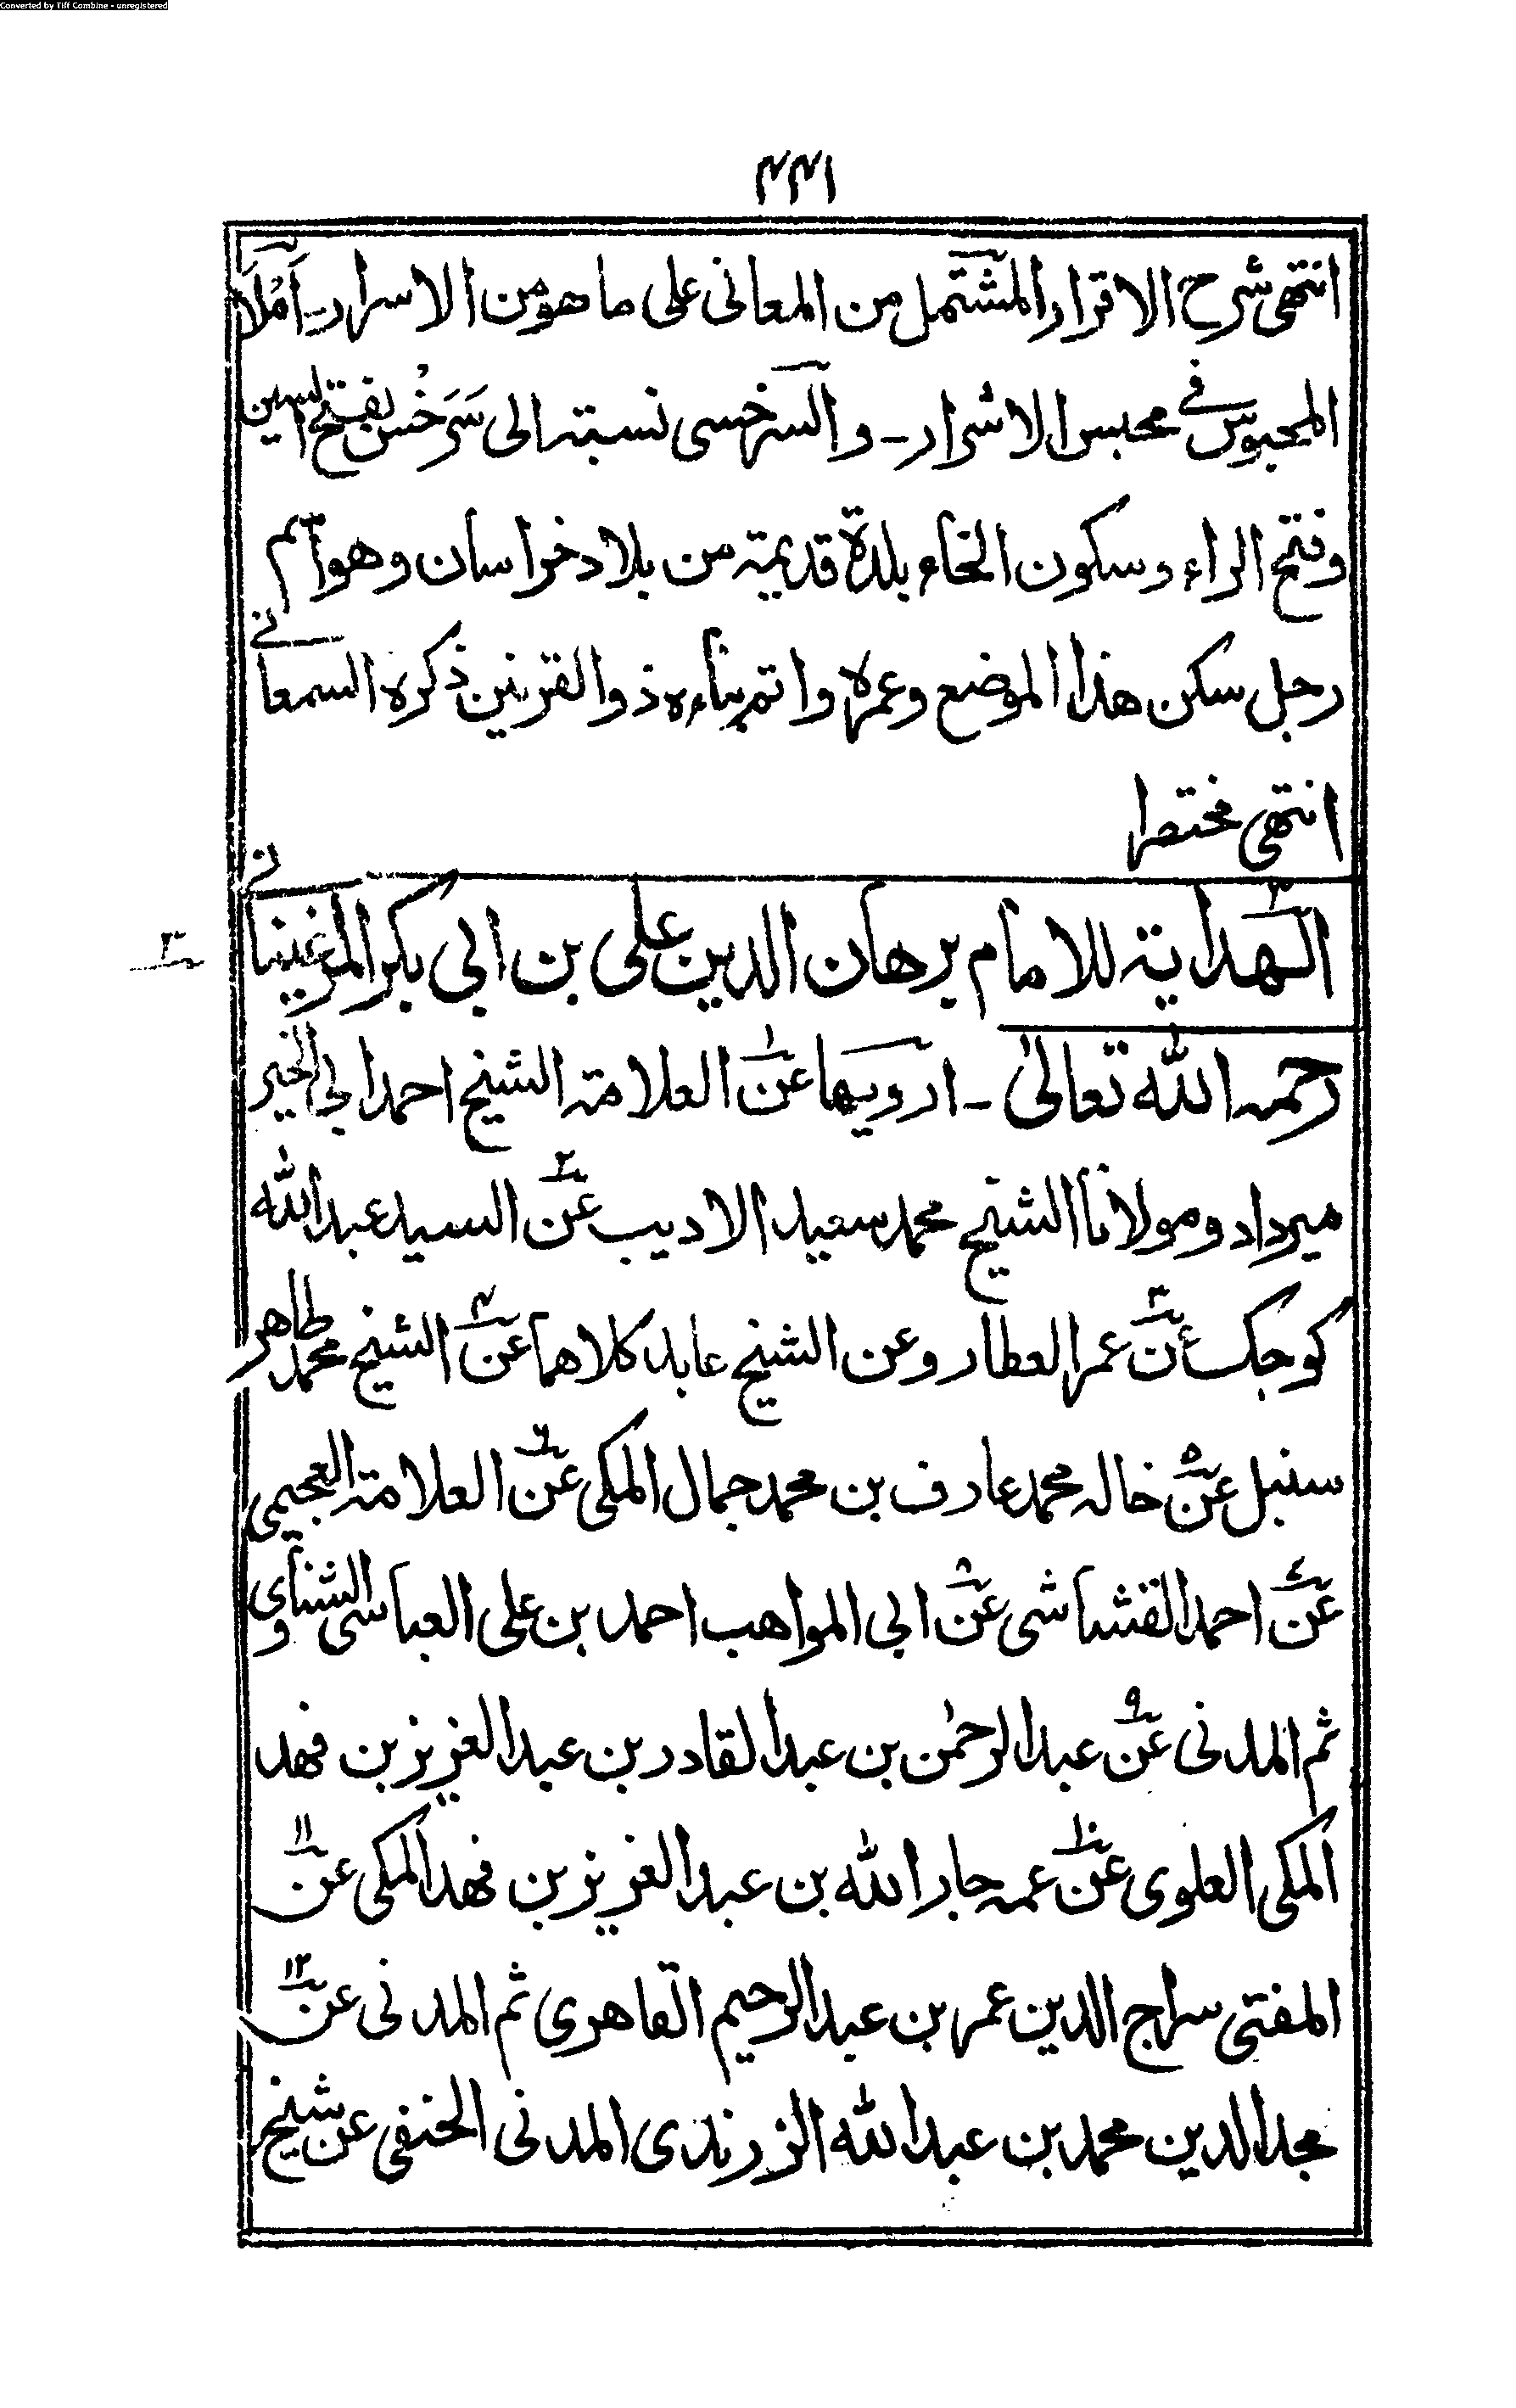 Converted by Tiff Combine - unregistered
٤٤١
انتهى شرح الاقرار المشتمل من المعانى على ما هو من الاسرار - أَمْلَاهُ
المحبوس فى محبس الاشرار - والسرخسى نسبته الى سَرَخْس بفتح السين
وفتح الراء وسكون الخاء بلدة قديمة من بلاد خراسان وهو اسم
رجل سكن هذا الموضع وعمره واتم بناءه ذو القرنين ذكره السمعانى
انتهى مختصرا
الهداية للامام برهان الدين على بن ابي بكر المرغينانى
٣
رحمه الله تعالىٰ - ارويها عن١ العلامة الشيخ احمد ابى الخير
ميرداد ومولانا الشيخ محمد سعيد الاديب عن٢ السيد عبد الله
كوجك عن٣ عمر العطار وعن الشيخ عابد كلاهما عن٤ الشيخ محمد طاهر
سنبل عن٥ خاله محمد عارف بن محمد جمال المكى عن٦ العلامة العجيمى
عن٧ احمد القشاشى عن٨ ابى المواهب احمد بن على العباسى الشناوى
ثم المدنى عن٩ عبد الرحمٰن بن عبد القادر بن عبد العزيز بن فهد
المكى العلوى عن١٠ عمه جار الله بن عبد العزيز بن فهد المكى عن١١
المفتى سراج الدين عمر بن عبد الرحيم القاهرى ثم المدنى عن١٢
مجد الدين محمد بن عبد الله الزرندى المدنى الحنفى عن شيخ